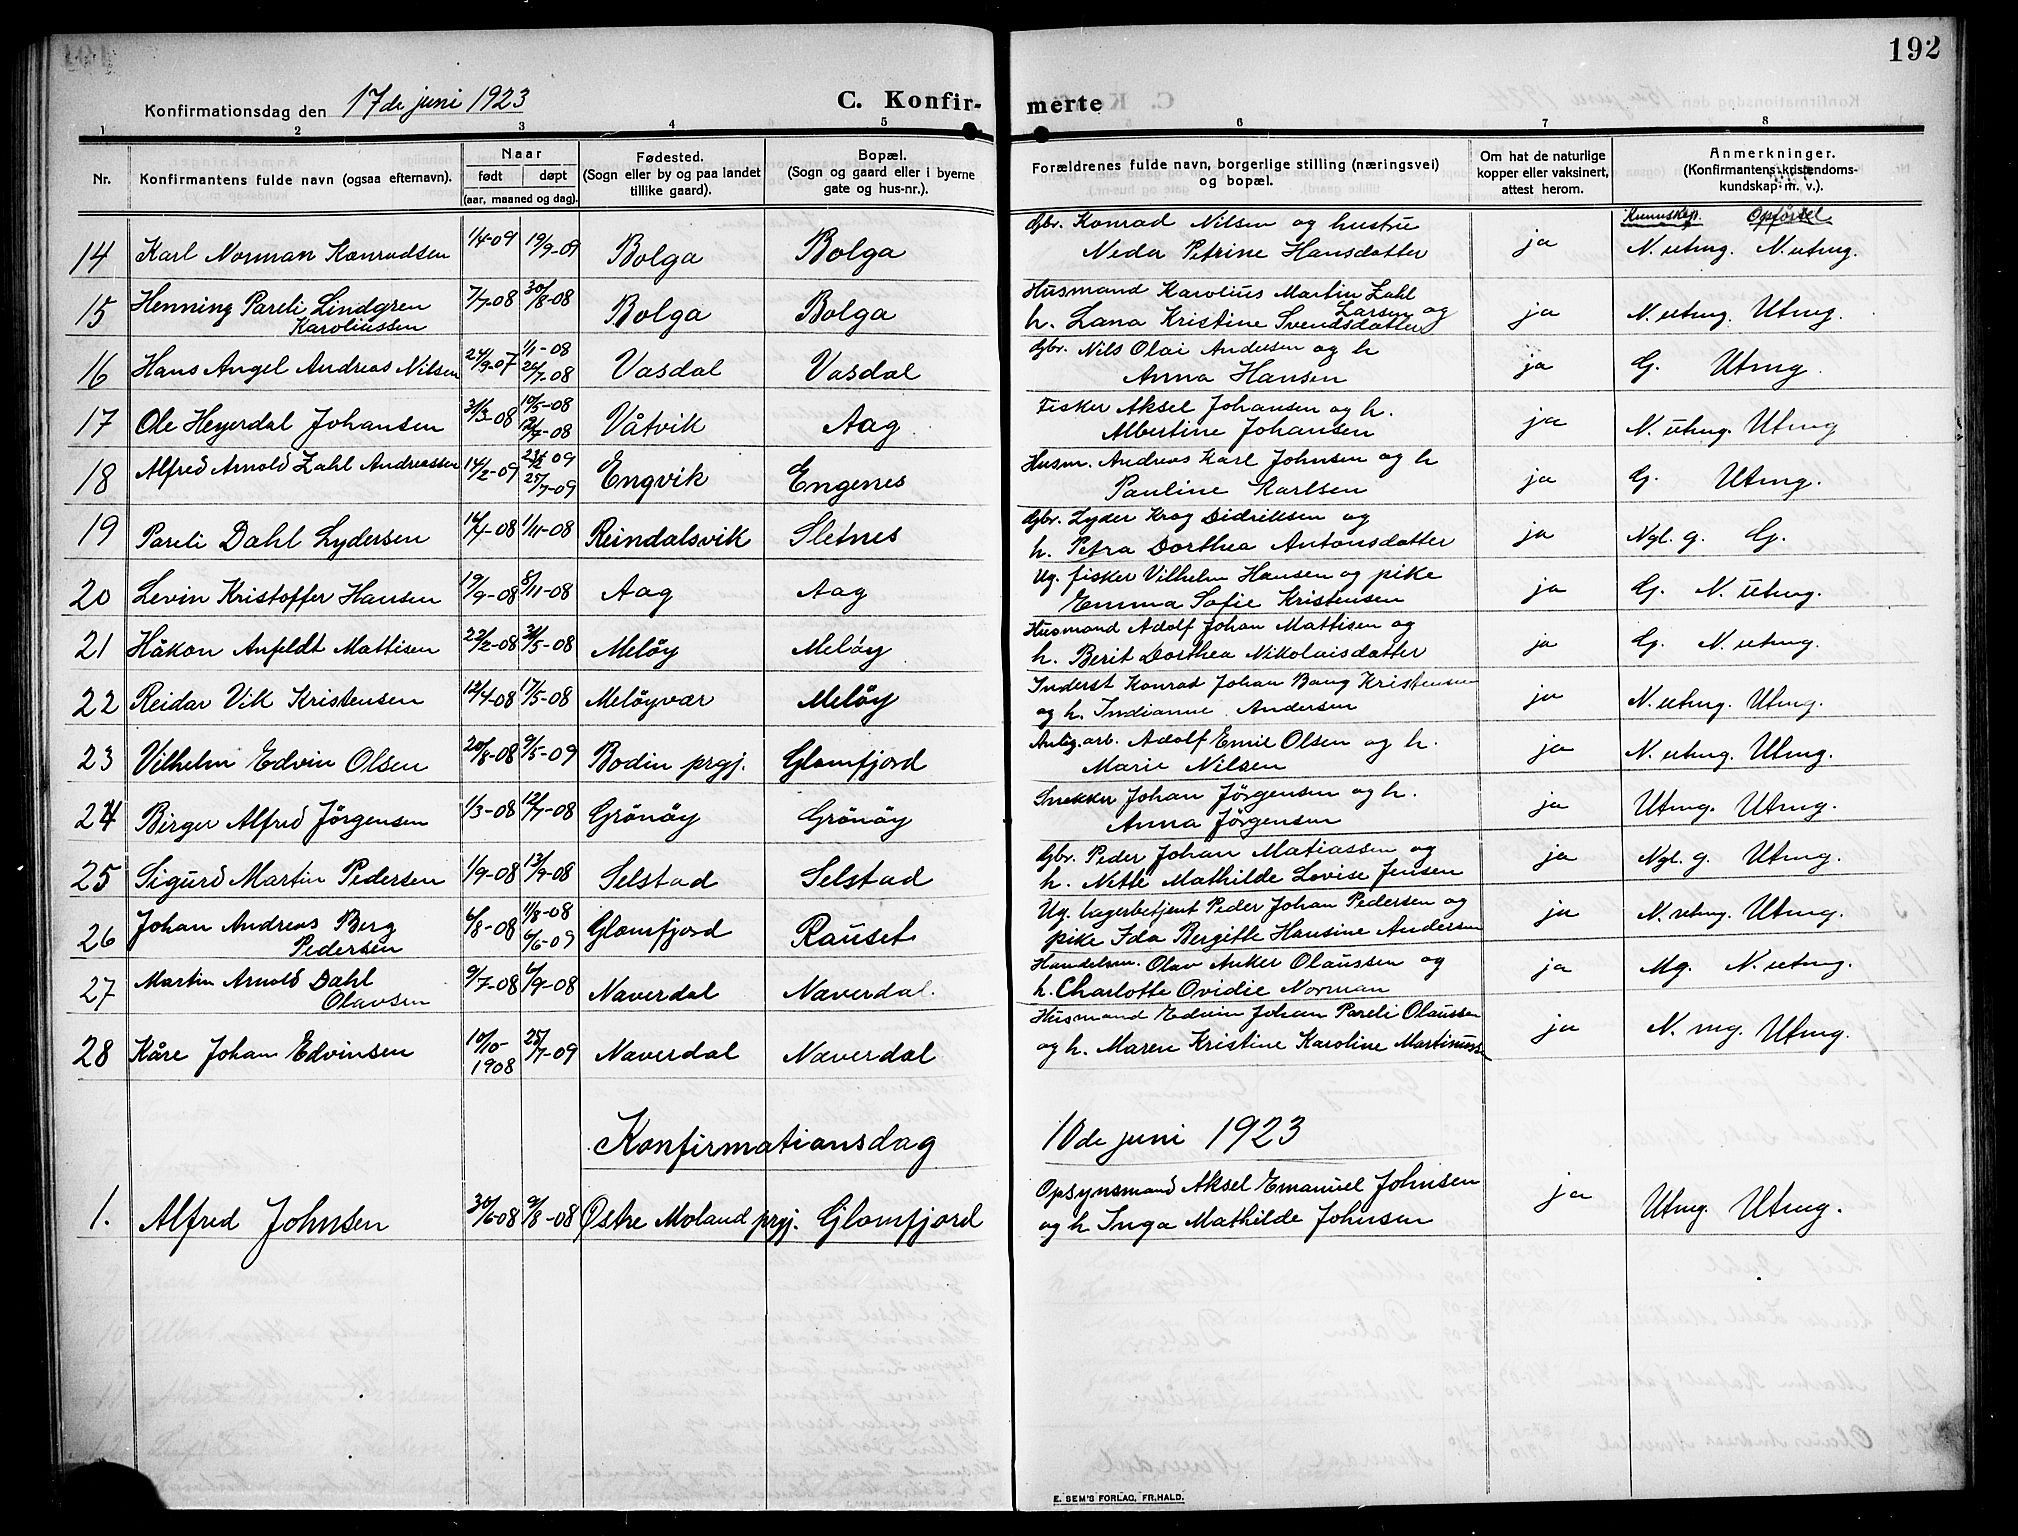 192
Konfirmationsdag den 17de juni 1923
C. Konfir-
merte
1 2 3 4 5 6 7 8
Nr. Konfirmantens fulde navn (ogsaa efternavn). Naar født døpt (aar, maaned og dag). Fødested. (Sogn eller by og paa landet tillike gaard). Bopæl. (Sogn og gaard eller i byerne gate og hus-nr.). Forældrenes fulde navn, borgerlige stilling (næringsvei) og bopæl. Om hat de naturlige kopper eller vaksinert, attest herom. Anmerkninger. (Konfirmantens kristendoms-kundskap m. v.).
Kunnskap. Opførsel
14 Karl Norman Konradsen 1/4-09 19/9-09 Bolga Bolga Gbr. Konrad Nilsen og hustru Neda Petrine Hansdatter ja N. utmg. N. utmg.
15 Henning Pareli Lindgren Karoliussen 7/7-08 30/8-08 Bolga Bolga Husmand Karolius Martin Zahl Larsen og h. Lana Kristine Svendsdatter ja N. utmg. Utmg.
16 Hans Angel Andreas Nilsen 24/9-07 1/1-08 26/7-08 Vasdal Vasdal Gbr. Nils Olai Andersen og h Anna Hansen ja G. Utmg.
17 Ole Heyerdal Johansen 31/3-08 10/5-08 12/7-08 Våtvik Aag Fisker Aksel Johansen og h. Albertine Johansen ja N. utmg. Utmg
18 Alfred Arnold Zahl Andreassen 14/2-09 09 25/7-09 Engvik Engenes Husm. Andreas Karl Johnsen og h Pauline Karlsen ja G. Utmg.
19 Pareli Dahl Lydersen 16/4-08 1/11-08 Reindalsvik Sletnes Gbr. Lyder Krog Didriksen og h. Petra Dorthea Antonsdatter ja Ngl. g. G.
20 Levin Kristoffer Hansen 19/9-08 8/11-08 Aag Aag Ug. fisker Vilhelm Hansen og pike Emma Sofie Kristensen ja G. N. utmg.
21 Håkon Anfeldt Mattisen 22/2-08 31/5-08 Meløy Meløy Husmand Adolf Johan Mattisen og h. Berit Dorthea Nikolaisdatter ja G. N. utmg.
22 Reidar Vik Kristensen 12/4-08 17/5-08 Meløyvær Meløy Inderst Konrad Johan Bang Kristensen og h. Indianne Andersen ja N. utmg. Utmg.
23 Vilhelm Edvin Olsen 20/8-08 9/5-09 Bodin prgj. Glomfjord Anlg. arb. Adolf Emil Olsen og h. Marie Nilsen ja N. utmg. Utmg.
24 Birger Alfred Jörgensen 1/3-08 12/7-08 Grönöy Grönöy Snekker Johan Jörgensen og h. Anna Jörgensen ja Utmg. Utmg.
25 Sigurd Martin Pedersen 1/9-08 13/9-08 Selstad Selstad Gbr. Peder Johan Matiassen og h. Nette Mathilde Lovise Jensen ja Ngl. g. Utmg.
26 Johan Andreas Berg Pedersen 6/8-08 11/8-08 6/6-09 Glomfjord Rauset Ug. lagerbetjent Peder Johan Pedersen og pike Ida Bergitte Hansine Andersen ja N. utmg. Utmg.
27 Martin Arnold Dahl Olavsen 9/7-08 6/9-08 Næverdal Næverdal. Handelsm. Olav Anker Olaussen og h. Charlotte Ovidie Norman ja Mg. N. utmg.
28 Kåre Johan Edvinsen 10/10-1908 25/7-09 Næverdal Næverdal Husmand Edvin Johan Pareli Olaussen og h. Maren Kristine Karoline Martinussen ja N. mg. Utmg.
Konfirmationsdag 10de juni 1923
1. Alfred Johnsen 30/6-08 9/8-08 Østre Moland prgj. Glomfjord Opsynsmand Aksel Emanuel Johnsen og h Inga Mathilde Johnsen ja Utmg. Utmg.
E. SEM'S FORLAG, FR.HALD.